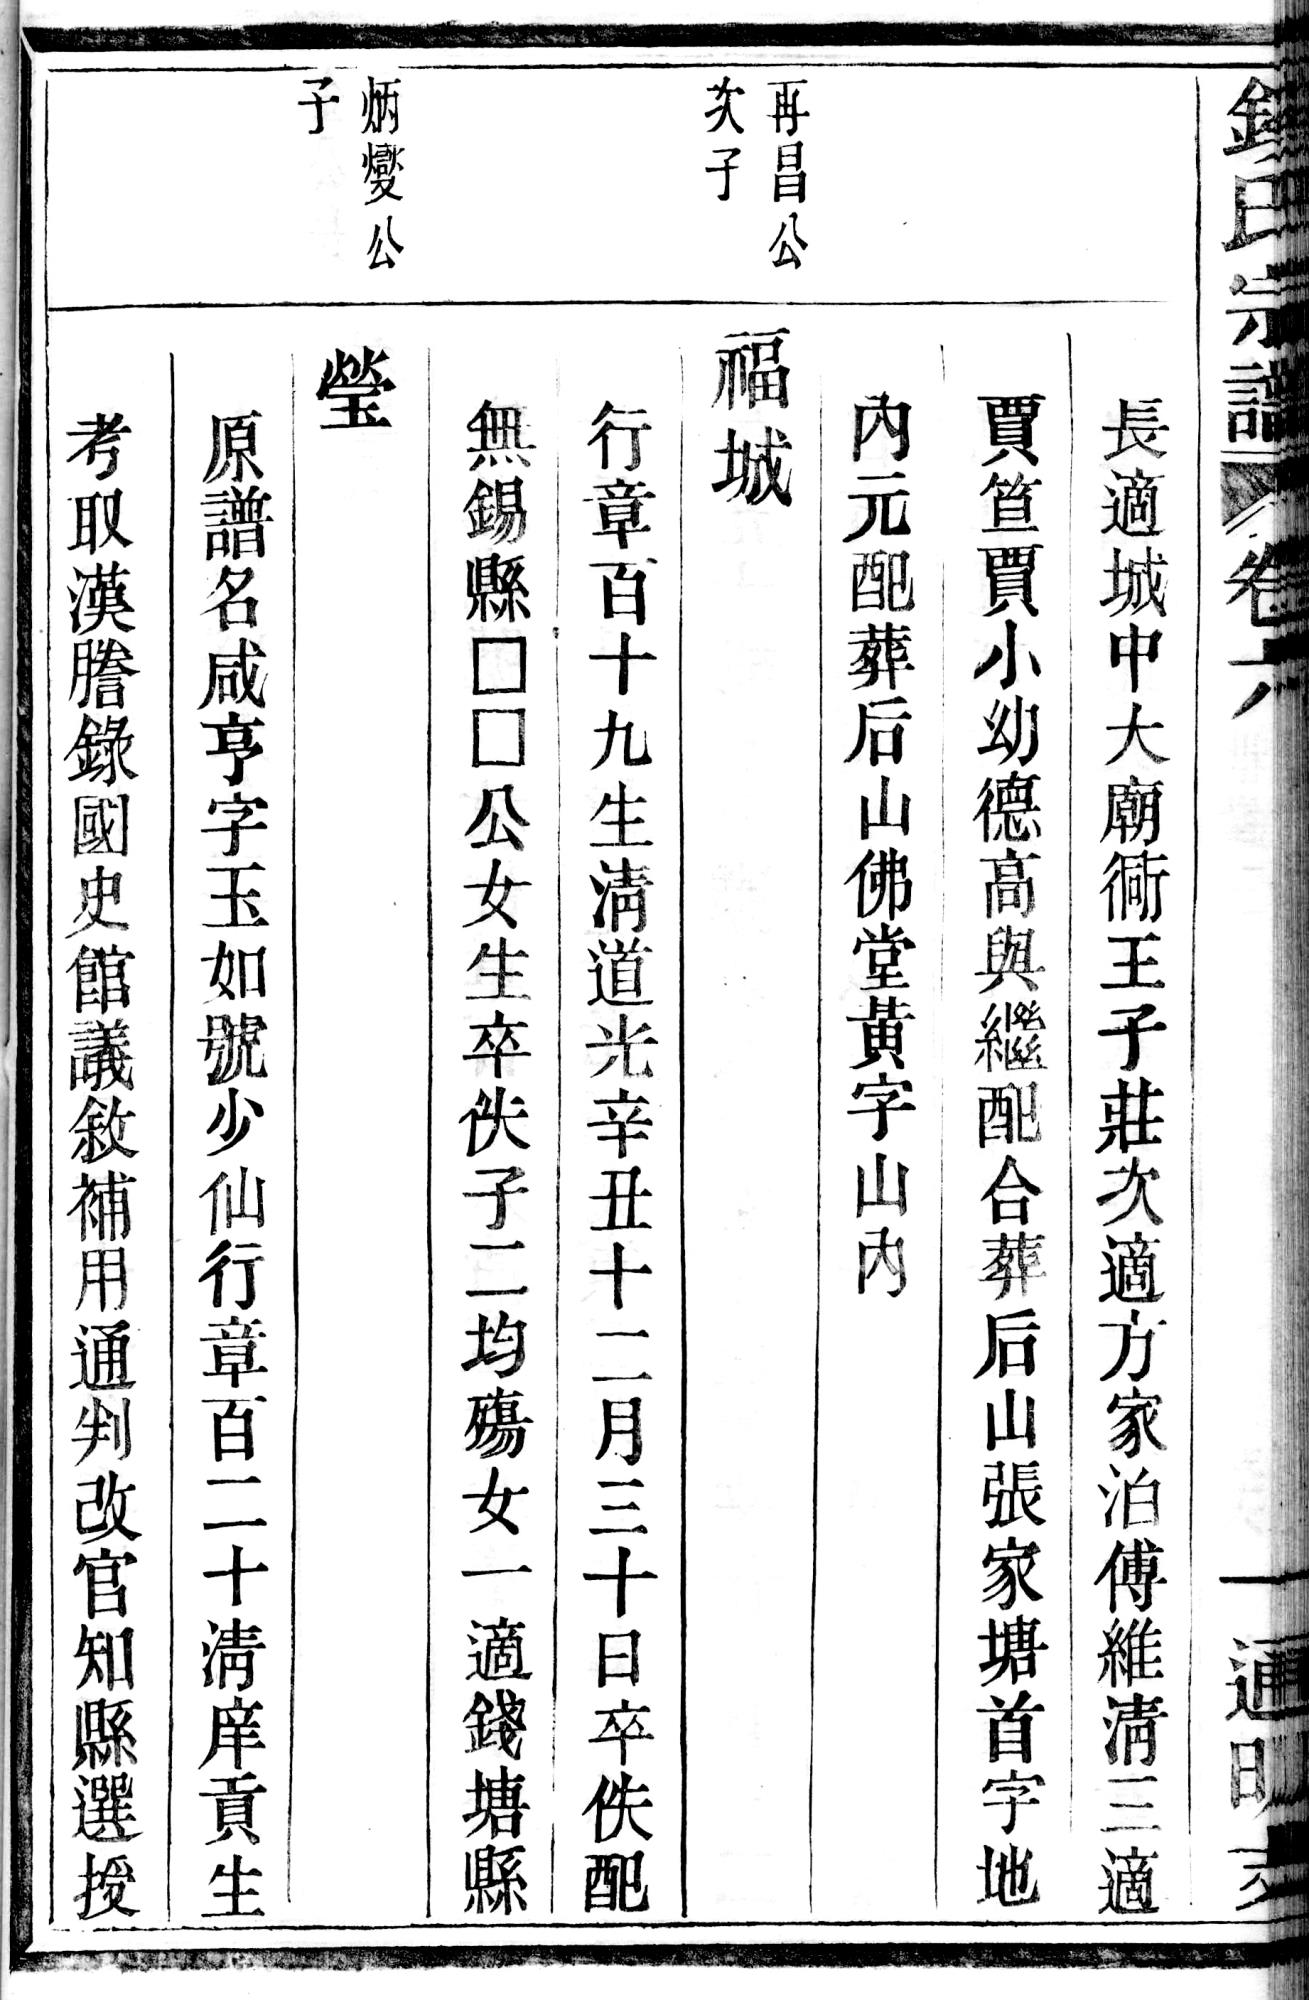 氏宗譜 卷六
長適城中大廟衕王子莊次適方家泊傅維淸三適
賈笪賈小幼德高與繼配合葬后山張家塘首字地
內元配葬后山佛堂黃字山內
再昌公
次子
福城
行章百十九生淸道光辛丑十二月三十日卒佚配
無錫縣□□公女生卒佚子二均殤女一適錢塘縣
炳燮公
子
瑩
原譜名咸亨字玉如號少仙行章百二十淸庠貢生
考取漢謄錄國史館議敘補用通判改官知縣選授